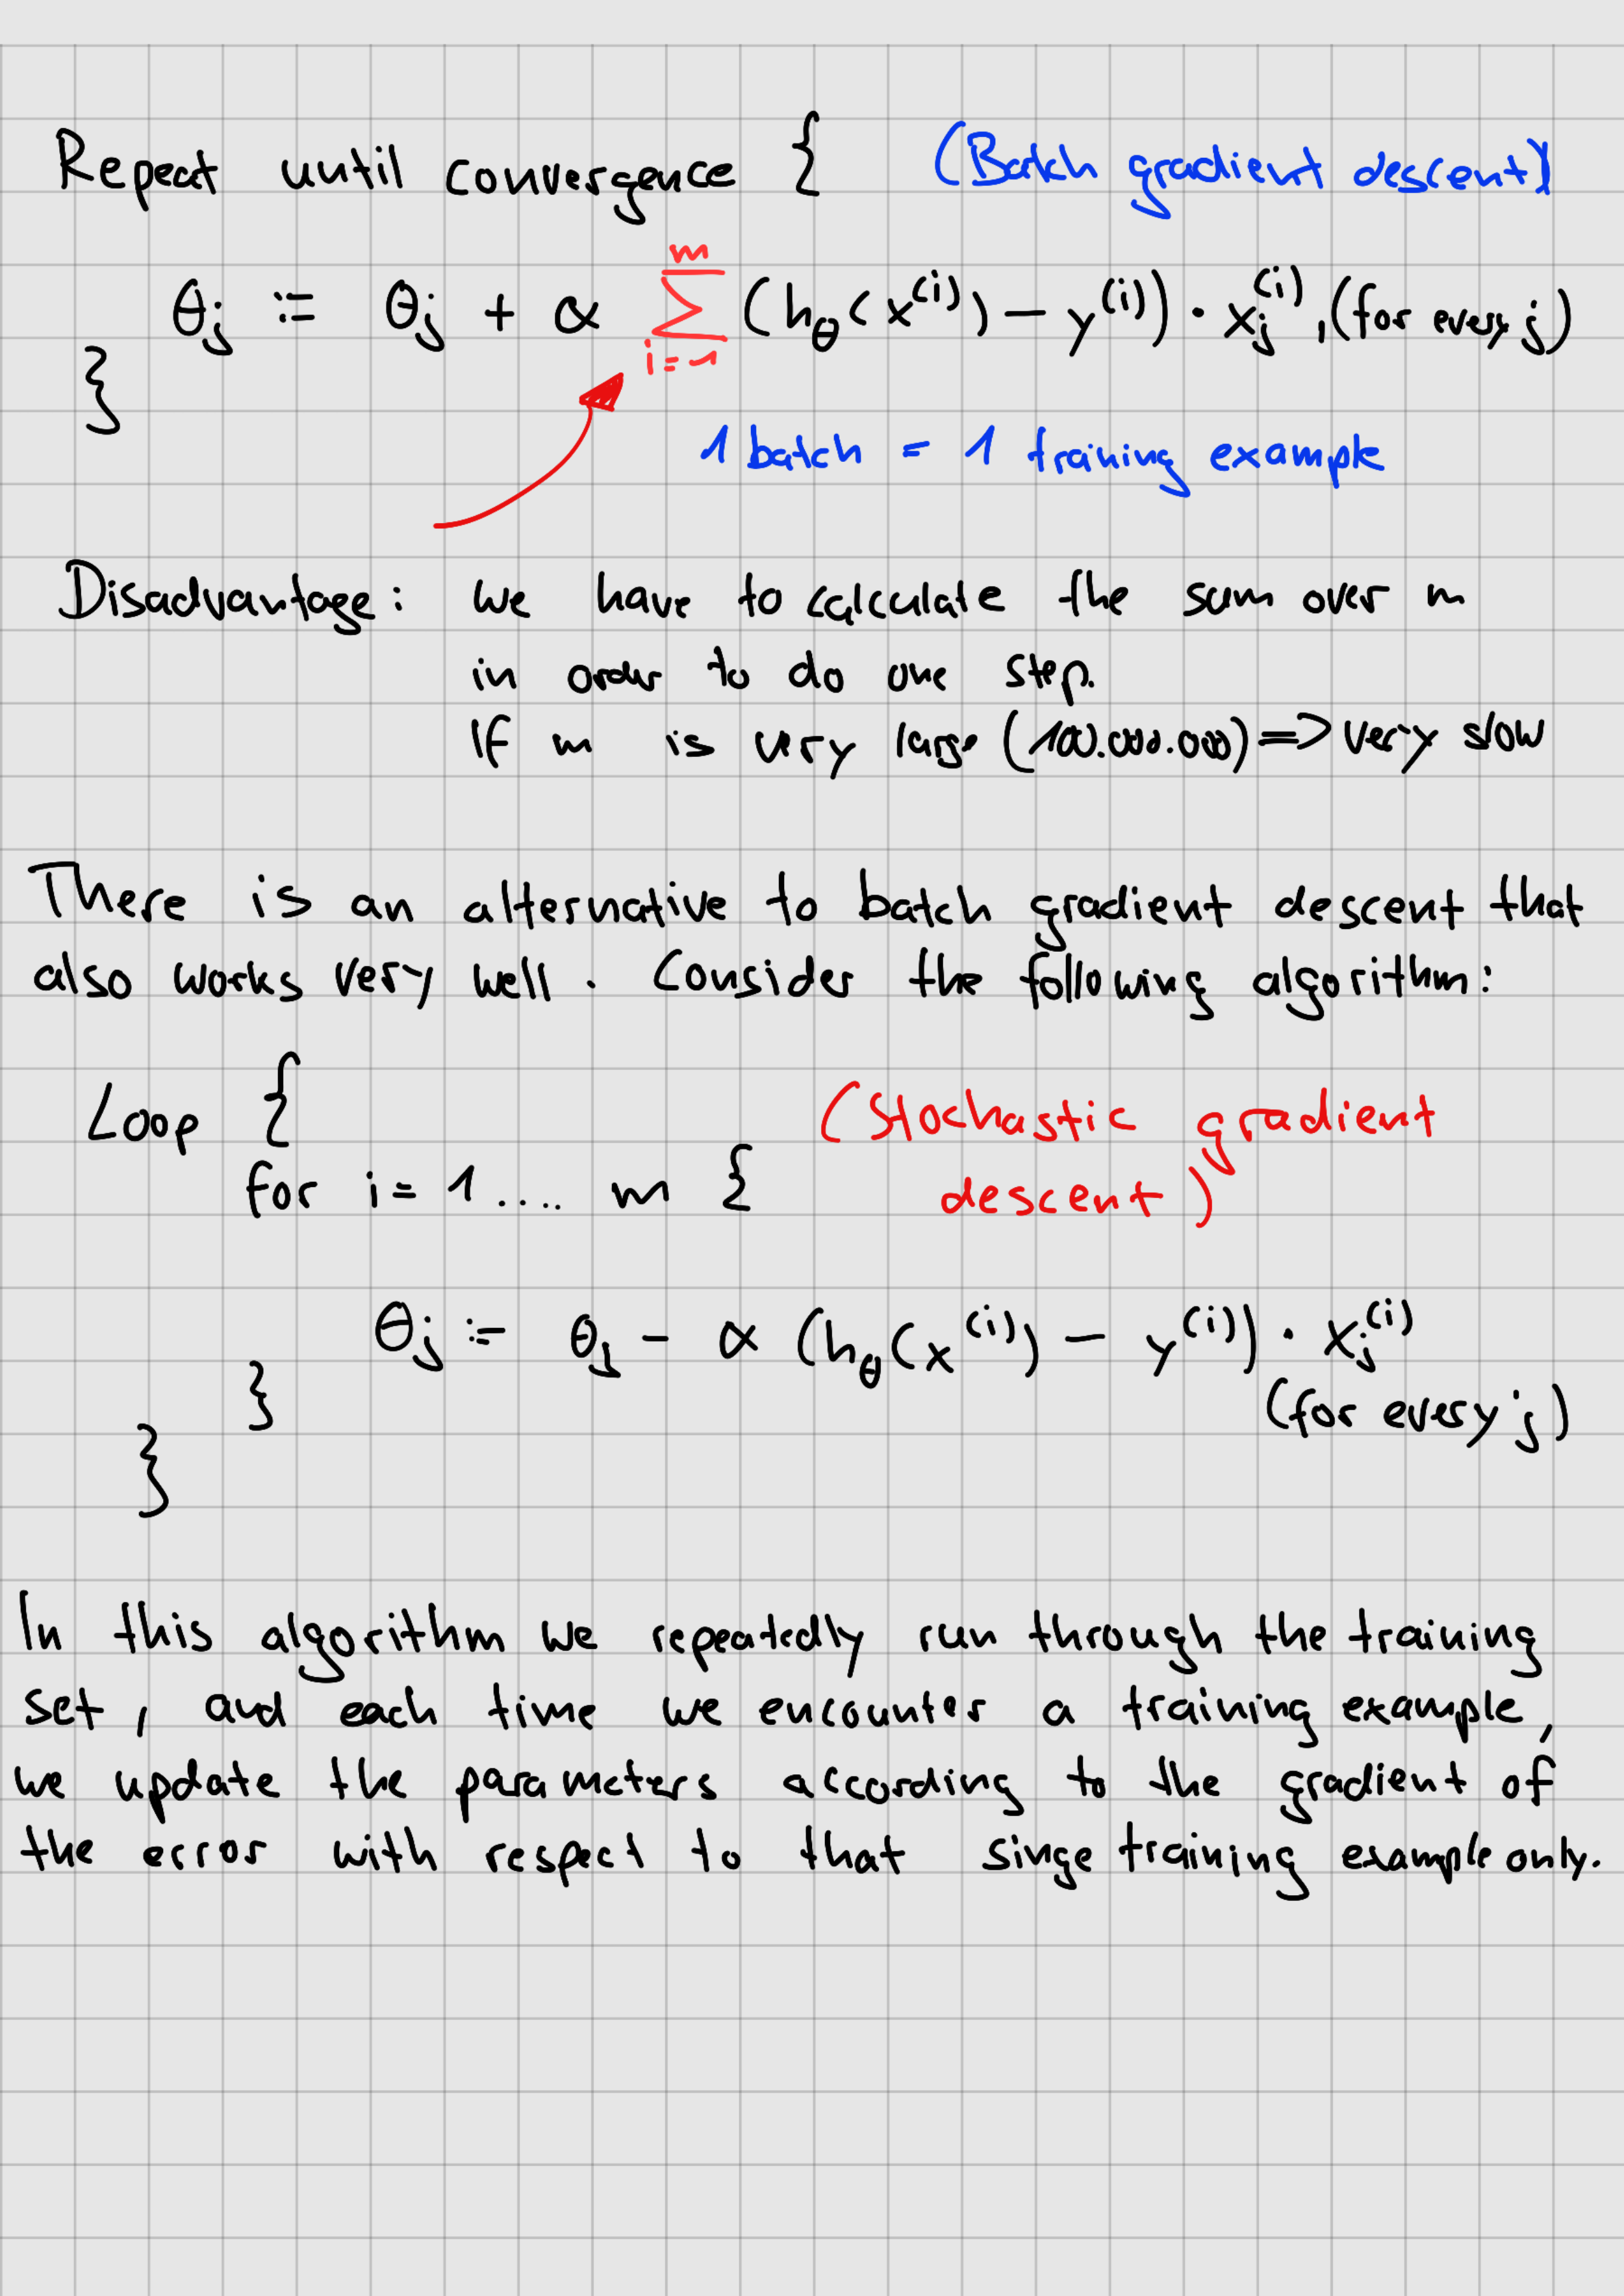 Repeat until convergence { (Batch gradient descent)
θj := θj + α ∑_{i=1}^{m} (hθ(x^(i)) − y^(i)) · xj^(i), (for every j)
}
1 batch = 1 training example
Disadvantage: we have to calculate the sum over m
in order to do one step.
If m is very large (100.000.000) => very slow
There is an alternative to batch gradient descent that
also works very well. Consider the following algorithm:
Loop { (Stochastic gradient
for i = 1 .... m { descent)
θj := θj − α (hθ(x^(i)) − y^(i)) · xj^(i)
} (for every j)
}
In this algorithm we repeatedly run through the training
set, and each time we encounter a training example,
we update the parameters according to the gradient of
the error with respect to that singe training example only.